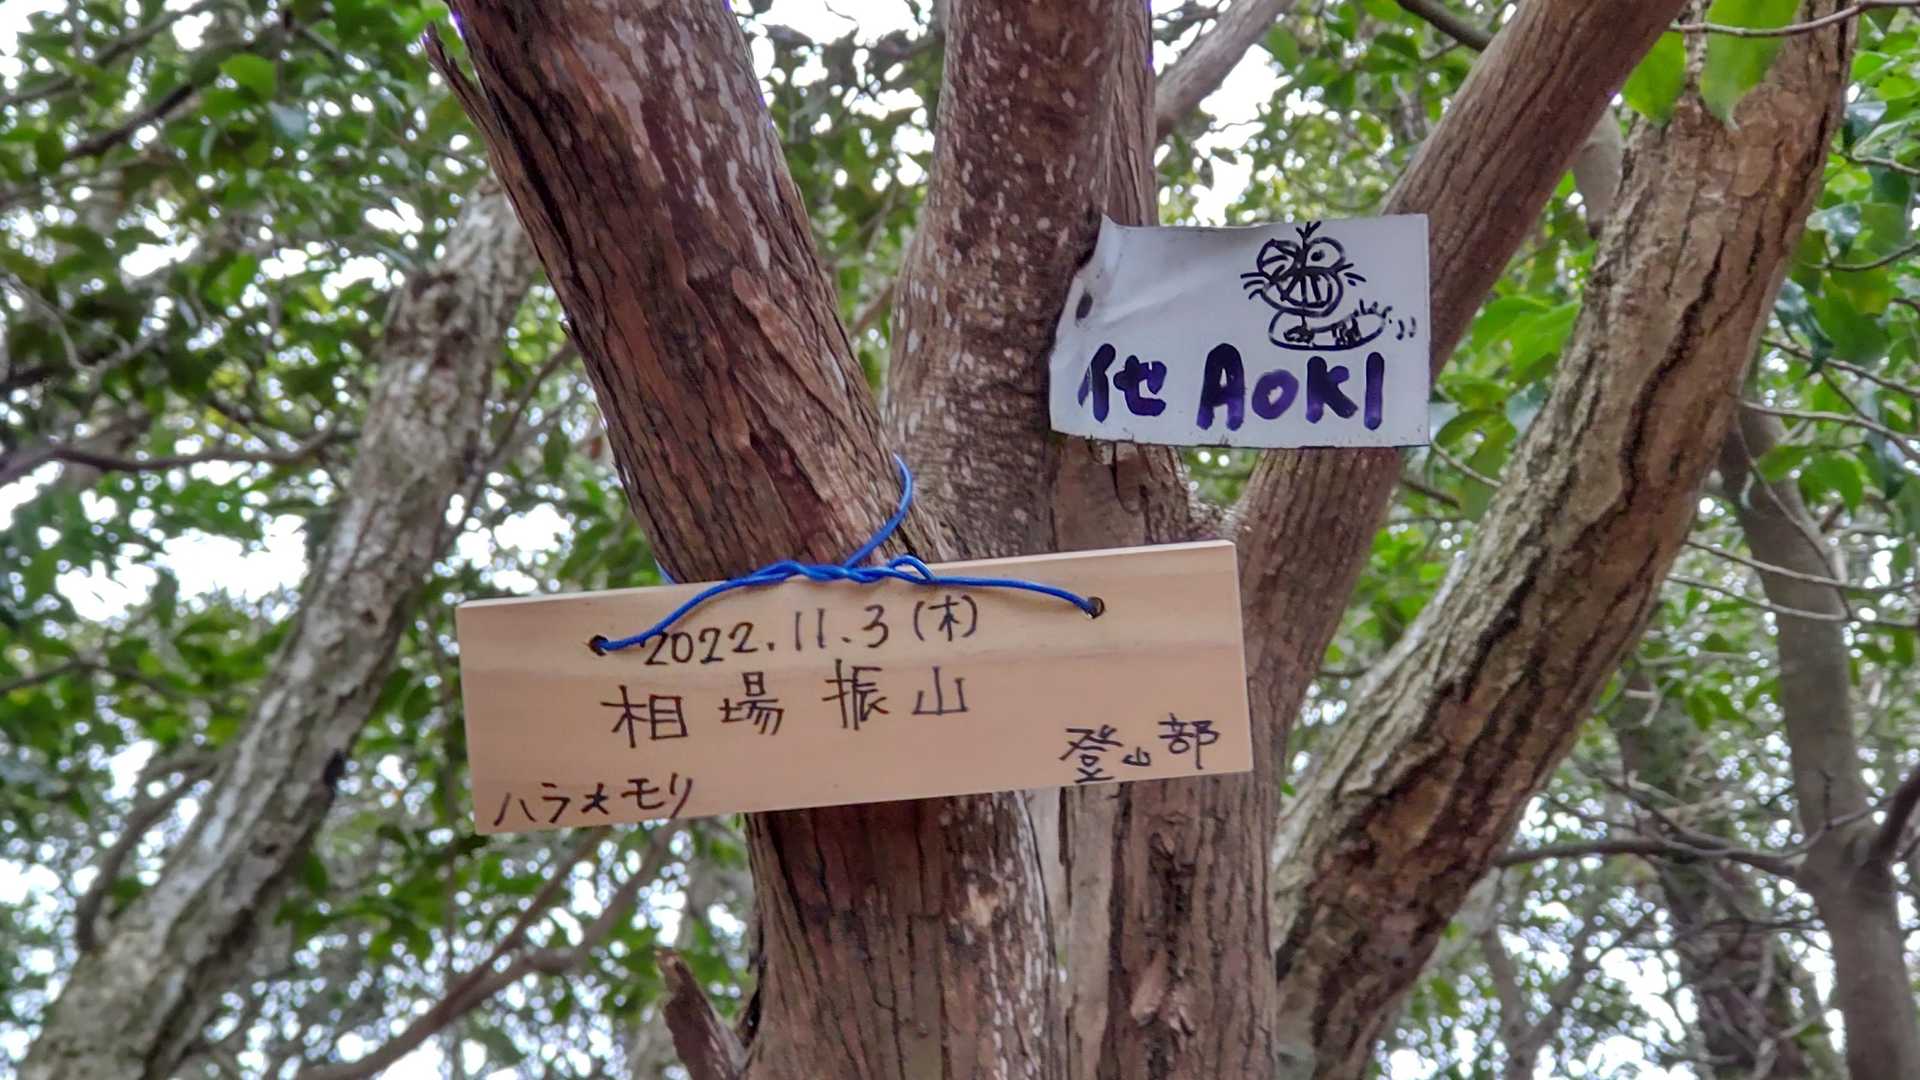 代 AOKI
2022.11.3(木)
相場振山
ハラ★モリ
登山部